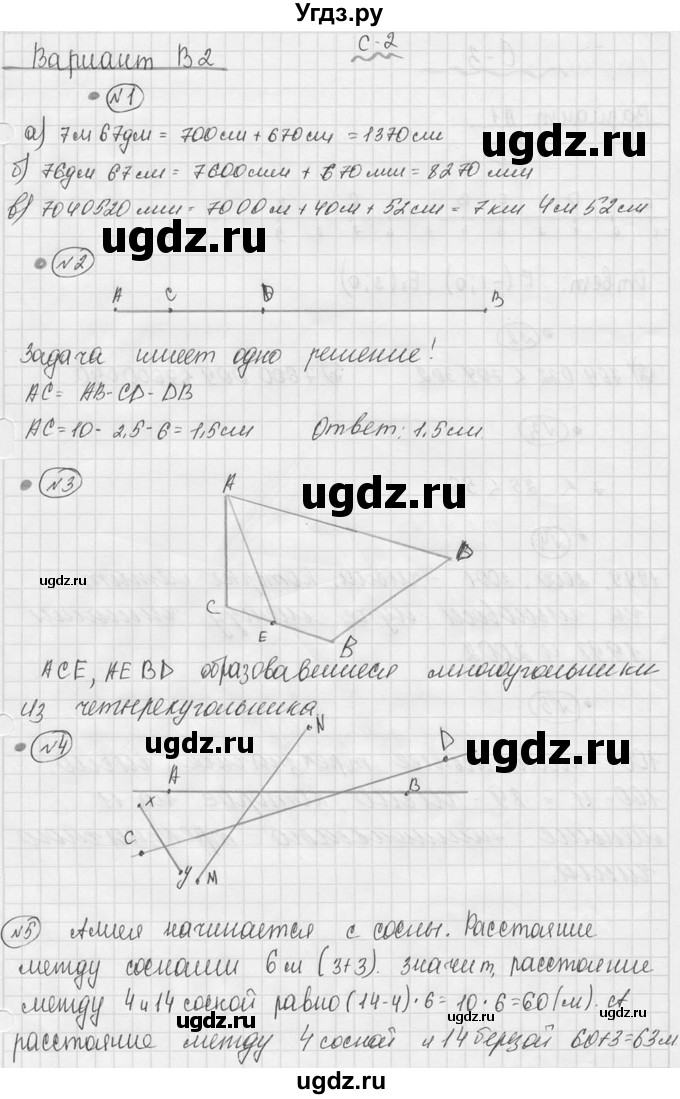 Угдз.ру
Вариант В2 С-2
№1
а) 7м 67дм = 700см + 670см = 1370см
б) 76дм 67см = 7600мм + 670мм = 8270мм
в) 7040520мм = 7000м + 40м + 52см = 7км 4м 52см
ugdz.ru ugdz.ru
№2
A C D B
Задача имеет одно решение!
AC = AB - CD - DB
AC = 10 - 2,5 - 6 = 1,5см Ответ: 1,5см
№3
ugdz.ru ugdz.ru
A
D
C
E
B
ACE, AEBD образовавшиеся многоугольники
из четырехугольника
№4
ugdz.ru ugdz.ru
N
D
A
B
X
C
y M
№5 Аллея начинается с сосны. Расстояние
между соснами 6м (3+3). значит, расстояние
между 4 и 14 сосной равно (14-4)·6 = 10·6 = 60(м). А
расстояние между 4 сосной и 14 березой 60+3=63м
ugdz.ru ugdz.ru
ugdz.ru